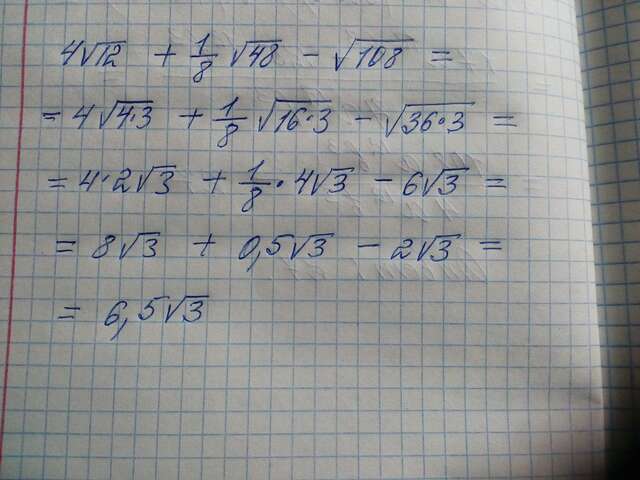 4√12 + 1/8 √48 - √108 =
= 4√4·3 + 1/8 √16·3 - √36·3 =
= 4·2√3 + 1/8 · 4√3 - 6√3 =
= 8√3 + 0,5√3 - 2√3 =
= 6,5√3